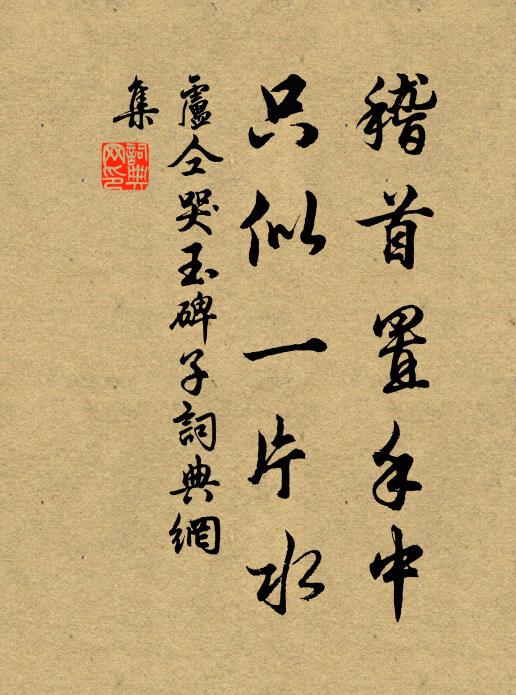 稽首置手中
只似一片水
盧仝哭玉碑子詞典網
集
詞典网印